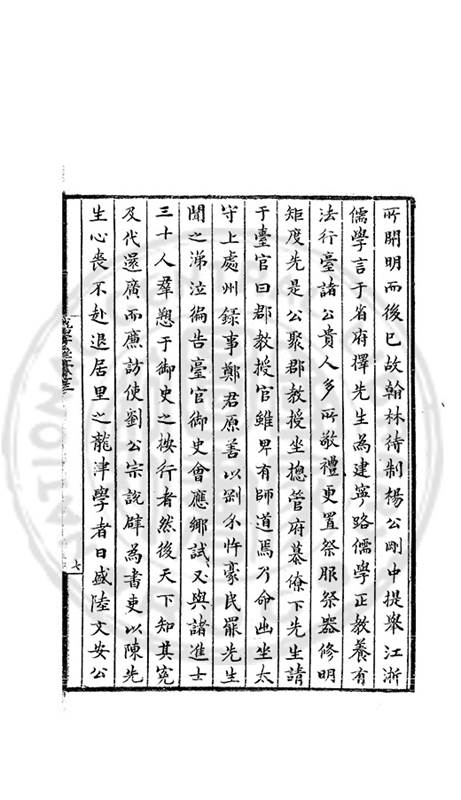 所開明而後已故翰林待制楊公剛中提舉江浙
儒學言于省府擇先生為建寧路儒學正教養有
法行臺諸公貴人多所敬禮更置祭服祭器修明
矩度先是公聚郡教授坐摠管府幕僚下先生請
于臺官曰郡教授官雖卑有師道焉乃命出坐太
守上處州錄事鄭君原善以劉不忤豪民罷先生
聞之涕泣徧告臺官御史會應鄉試又與諸進士
三十人羣愬于御史之按行者然後天下知其冤
及代還廣而廉訪使劉公宗說辟為書吏以陳先
生心喪不赴退居里之龍津學者日盛陸文安公
七